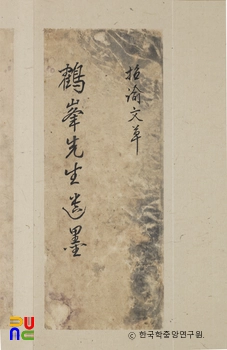 招諭文草
鶴峯先生遺墨
© 한국학중앙연구원.